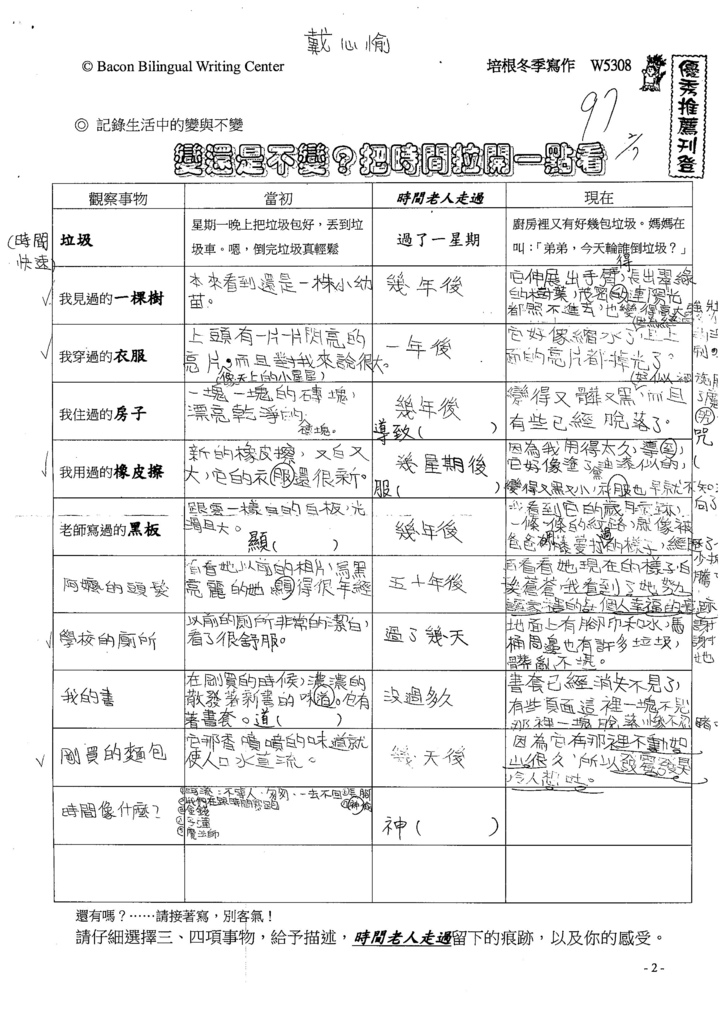 戴心愉
© Bacon Bilingual Writing Center
培根冬季寫作 W5308
優秀推薦刊登
97
◎ 記錄生活中的變與不變
變還是不變？把時間拉開一點看
觀察事物 當初 時間老人走過 現在
(時間快速)
垃圾
星期一晚上把垃圾包好，丟到垃
圾車。嗯，倒完垃圾真輕鬆
過了一星期
廚房裡又有好幾包垃圾。媽媽在
叫：「弟弟，今天輪誰倒垃圾？」
我見過的一棵樹
本來看到還是一株小幼
苗。
幾年後
它伸展出手臂，長出墨綠
我穿過的衣服
上頭有一片一片閃亮的
亮片，而且對我來說很大。
(像天上的小星星)
一年後
它好像縮水了，上
面的亮片都掉光了。
我住過的房子
一塊一塊的磚塊，
漂亮乾淨的
磚塊。
幾年後
導致( )
變得又髒又黑，而且
有些已經脫落了。
我用過的橡皮擦
新的橡皮擦，又白又
大，它的衣服還很新。
幾星期後
服( )
因為我用得太久，導
它好像塗了油漆似的，
變得又黑又小，衣服也早就不知
老師寫過的黑板
跟雪一樣白的白板，光
滑且大。
顯( )
幾年後
阿嬤的頭髮
看看她以前的相片，烏黑
亮麗的她顯得很年輕
五十年後
看看她現在的樣子，白
髮蒼蒼，我看到了她努力
學校的廁所
以前的廁所非常的潔白，
看了很舒服。
過了幾天
地面上有腳印和水，馬
桶周邊也有許多垃圾，
髒亂不堪。
我的書
在剛買的時候，濃濃的
散發著新書的味道。它有
著書套。道( )
沒過多久
書套已經消失不見了，
有些頁面這裡一塊不見
剛買的麵包
它那香噴噴的味道就
使人口水直流。
幾天後
因為它在那裡不動如
山很久，所以改變發臭
令人想吐。
時間像什麼？
魔法師
神( )
還有嗎？……請接著寫，別客氣！
請仔細選擇三、四項事物，給予描述，時間老人走過留下的痕跡，以及你的感受。
- 2 -